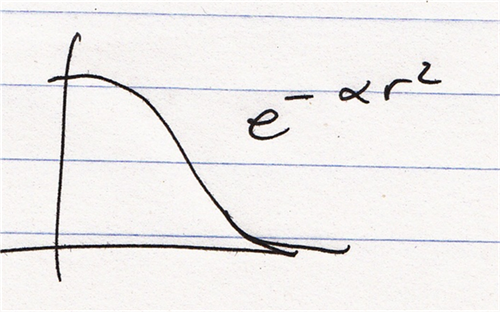 e^{-αr^2}